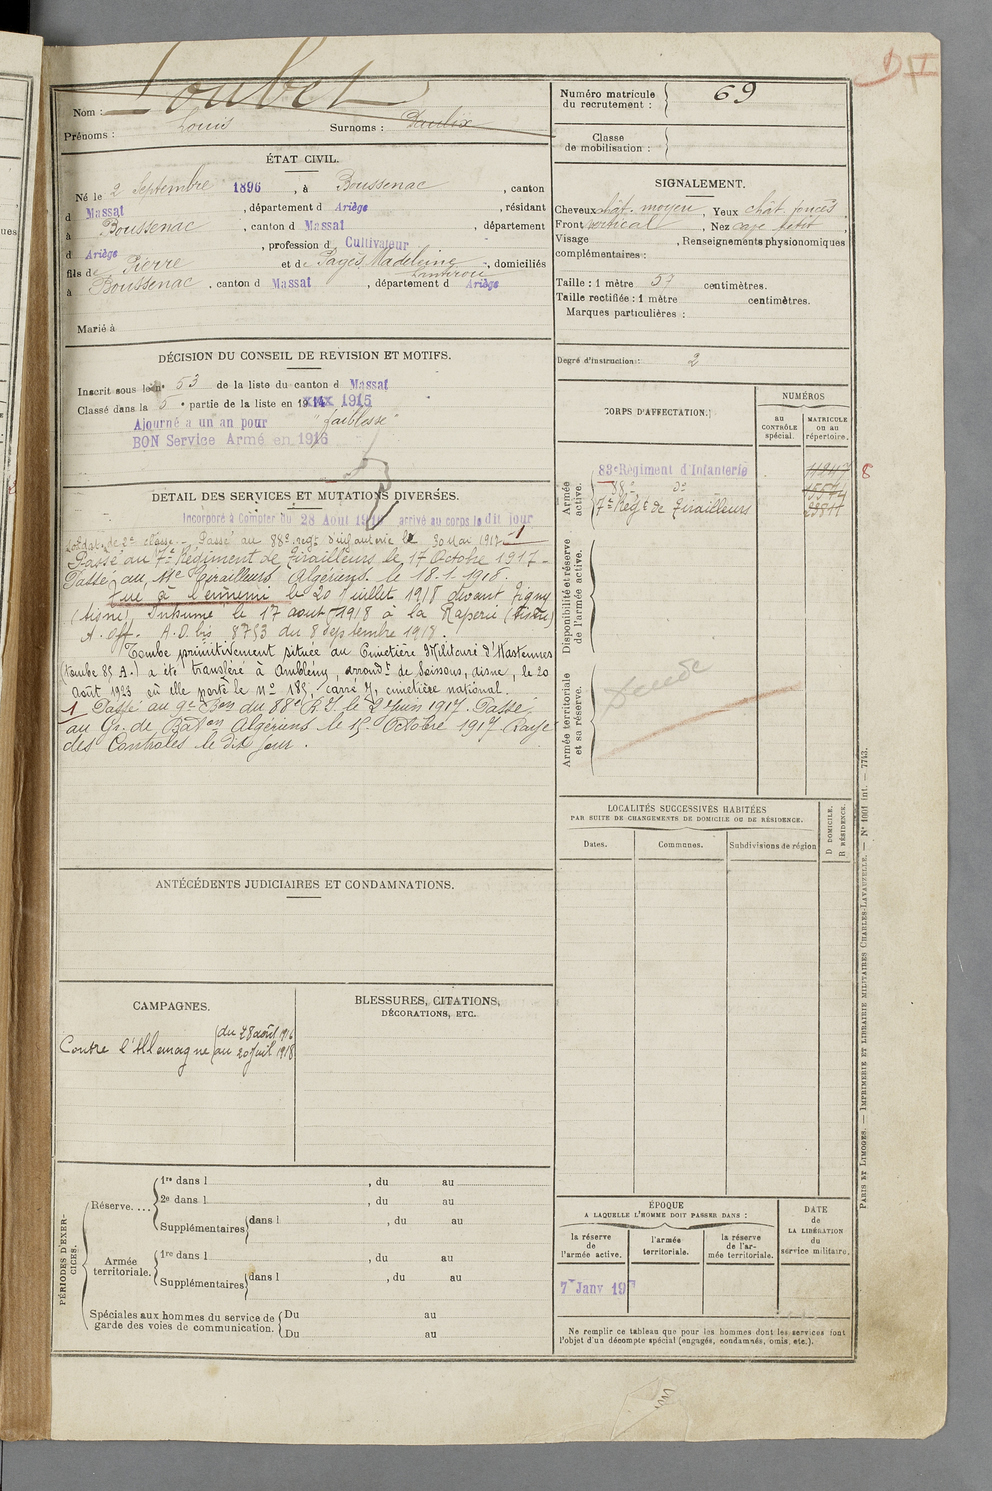 Nom : Loubet
Prénoms : Louis Surnoms :
ÉTAT CIVIL.
Né le 2 Septembre 1896, à Boussenac, canton
d Massat, département d Ariège, résidant
à Boussenac, canton d Massat, département
d Ariège, profession d Cultivateur
fils de Pierre et de Pagès Madeleine, domiciliés
à Boussenac, canton d Massat, département d Ariège
Marié à
DÉCISION DU CONSEIL DE REVISION ET MOTIFS.
Inscrit sous le n° 53 de la liste du canton d Massat
Classé dans la 5e partie de la liste en 1915
Ajourné a un an pour "faiblesse"
BON Service Armé en 1916
DÉTAIL DES SERVICES ET MUTATIONS DIVERSES.
Incorporé à Compter du 28 Aout 1916 arrivé au corps le dit jour
Soldat de 2e classe. - Passé au 88e regt d'infanterie le 30 mai 1917 - 1
Passé au 7e Régiment de Tirailleurs le 17 Octobre 1917 -
Passé au 11e Tirailleurs Algériens le 18-1-1918.
Tué à l'ennemi le 20 Juillet 1918 devant Tigny
(Aisne) Inhumé le 17 aout 1918 à la Raperie (Aisne)
A. off. A.D. bis 8753 du 8 septembre 1918.
Tombe primitivement située au Cimetière Militaire d'Hartennes
(tombe 85 A.) a été transféré à Ambleny, arrondt de Soissons, aisne, le 20
Août 1923 où elle porte le No 185, carré 7, cimetière national.
1 Passé au 9e Bon du 88e R.I. le 2 Juin 1917. Passé
au Gr. de Baton Algériens le 15 Octobre 1917 Rayé
des Contrôles le dit jour.
ANTÉCÉDENTS JUDICIAIRES ET CONDAMNATIONS.
CAMPAGNES.
Contre l'Allemagne (du 28 août 1916
au 20 Juil 1918
BLESSURES, CITATIONS,
DÉCORATIONS, ETC.
PÉRIODES D'EXERCICES.
Réserve....
1re dans l , du au
2e dans l , du au
Supplémentaires dans l , du au
Armée territoriale.
1re dans l , du au
Supplémentaires dans l , du au
Spéciales aux hommes du service de garde des voies de communication.
Du au
Du au
Numéro matricule du recrutement : 69
Classe de mobilisation :
SIGNALEMENT.
Cheveux chât. moyen, Yeux chât. foncés
Front vertical, Nez
Visage , Renseignements physionomiques
complémentaires :
Taille : 1 mètre 59 centimètres.
Taille rectifiée : 1 mètre centimètres.
Marques particulières :
Degré d'instruction : 2
CORPS D'AFFECTATION.
NUMÉROS
AU CONTRÔLE spécial.
MATRICULE OU AU répertoire.
Armée active.
83e Régiment d'Infanterie 8
88e do
7e Régt de Tirailleurs
Disponibilité et réserve de l'armée active.
Armée territoriale et sa réserve.
LOCALITÉS SUCCESSIVES HABITÉES
PAR SUITE DE CHANGEMENTS DE DOMICILE OU DE RÉSIDENCE.
Dates. Communes. Subdivisions de région
D DOMICILE.
R RÉSIDENCE.
ÉPOQUE
A LAQUELLE L'HOMME DOIT PASSER DANS :
la réserve de l'armée active.
l'armée territoriale.
la réserve de l'armée territoriale.
DATE de LA LIBÉRATION du service militaire.
7 Janv 19
Ne remplir ce tableau que pour les hommes dont les services font
l'objet d'un décompte spécial (engagés, condamnés, omis, etc.).
PARIS ET LIMOGES. — IMPRIMERIE ET LIBRAIRIE MILITAIRES CHARLES-LAVAUZELLE. — N° 1001 int. — 7743.